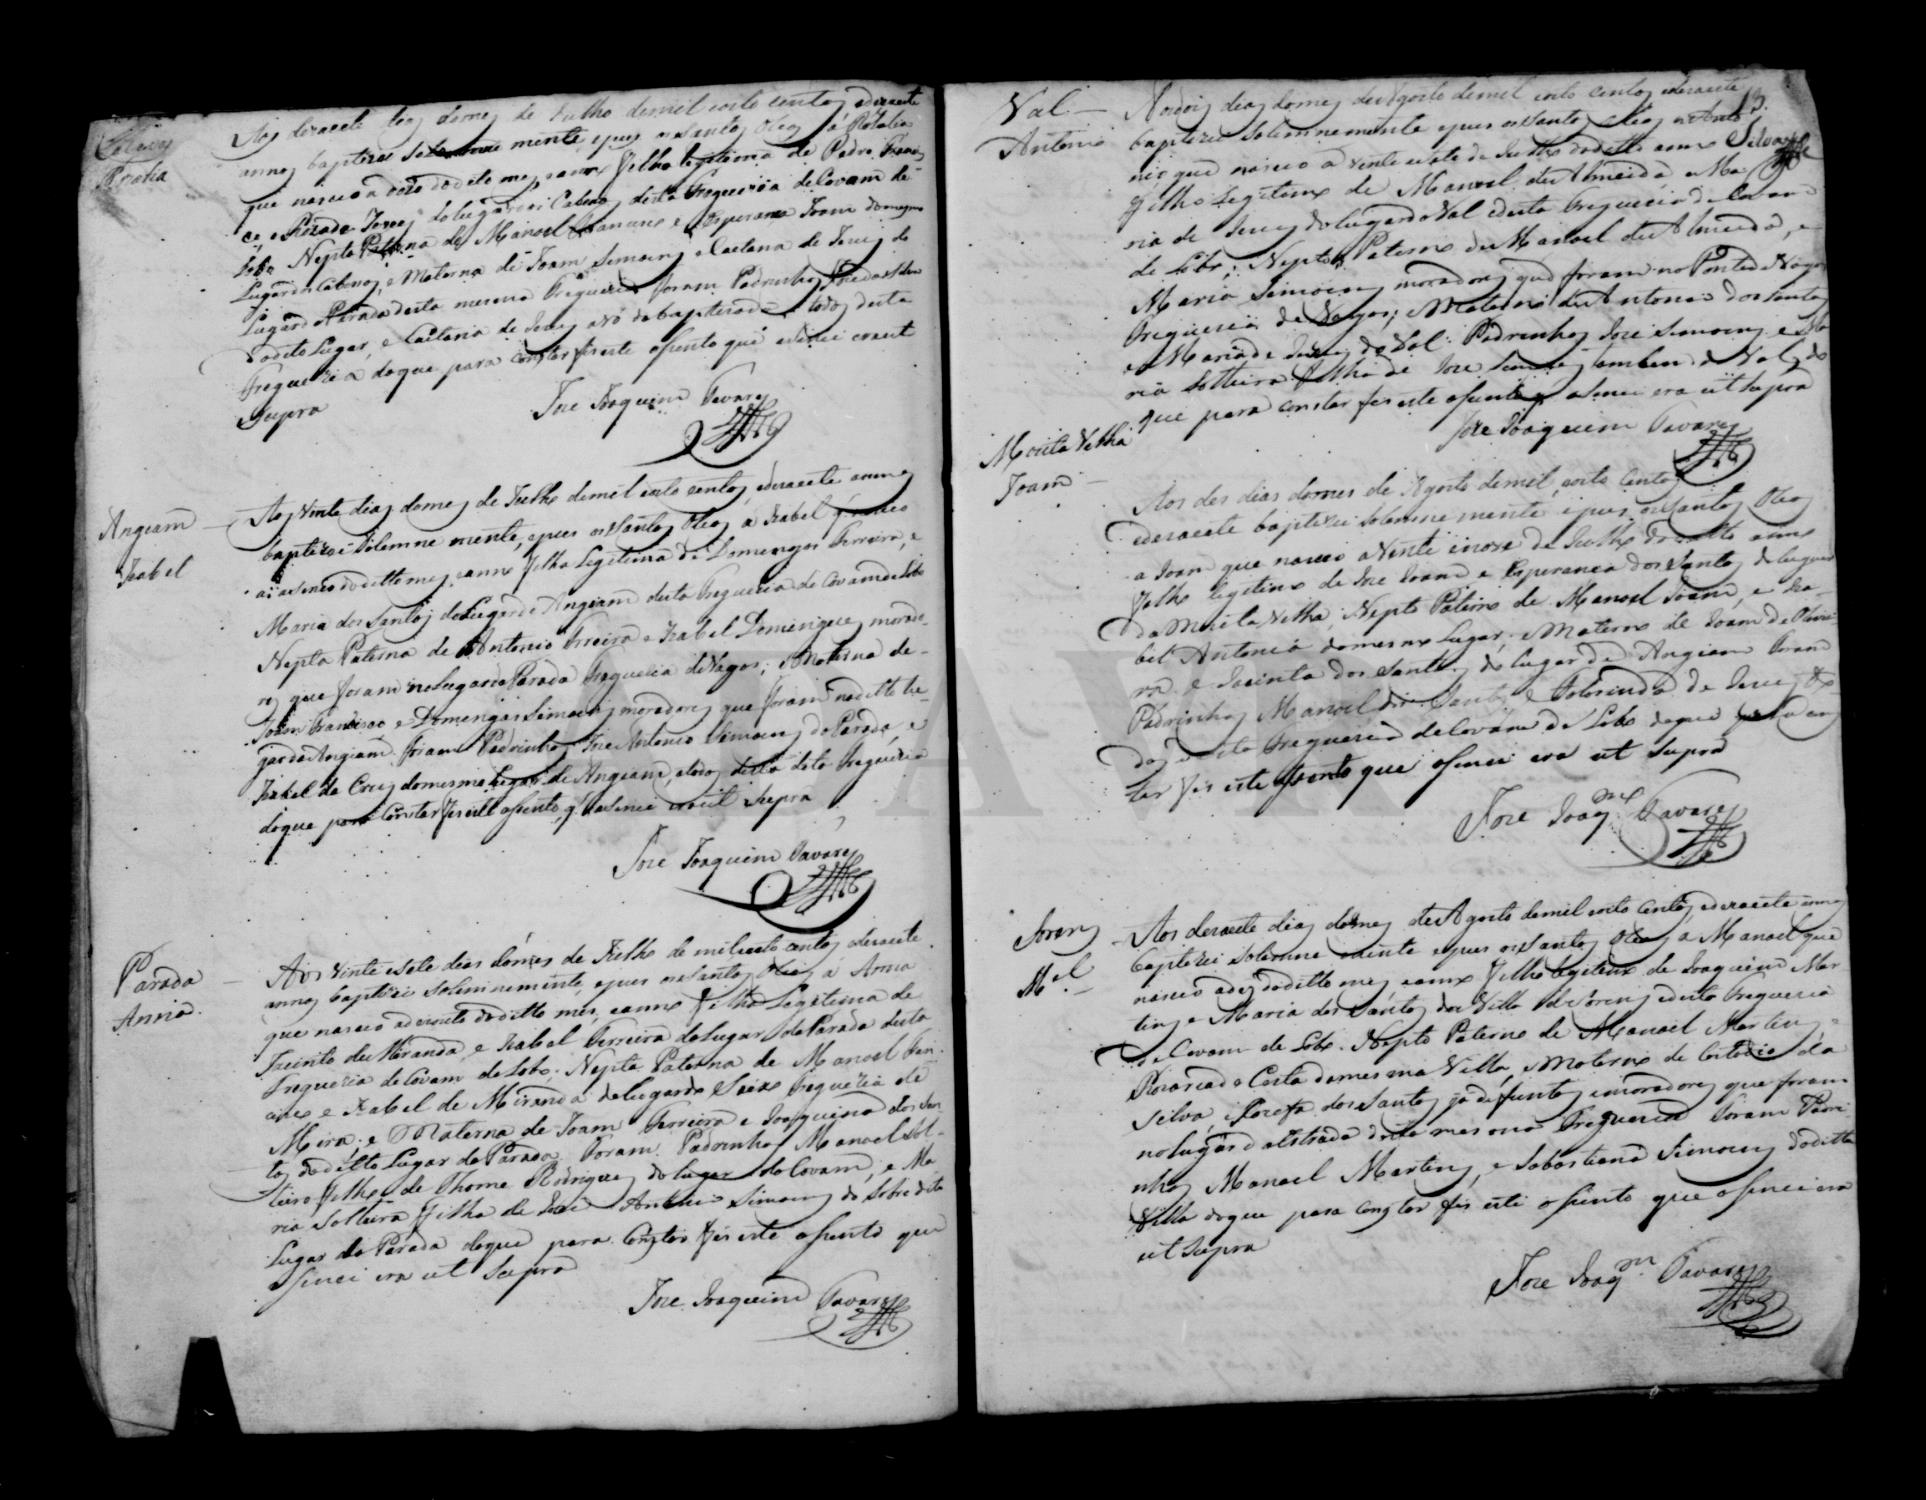 Rozalia
Aos dezacete dias do mes de Julho de mil oito centos e dezacete
annos baptizei solemnemente, e pus os Santos Oleos á Rozalia
que nasceo a doze do dito mes, e anno filha legitima de Pedro
e Roza de Jezus do lugar dos Cabesos desta Freguezia de Covam de
Lobo Nepta Paterna de Manoel e Esperansa Joam do mesmo
Lugar dos Cabesos, e Materna de Joam Simoens e Caetana de Jezus do
Lugar da Parada desta mesma Freguezia foram Padrinhos
do dito Lugar, e Caetana de Jezus avó da baptizada todos desta
Freguezia do que para constar fis este asento que asinei era ut
Supra
Joze Joaquim Tavares
Angiam
Izabel
Aos vinte dias do mes de Julho de mil oito centos, e dezacete annos
baptizei solemne mente, e pus os Santos Oleos a Izabel q nasceo
do ditto mes, e anno filha Legitima de Domingos Ferreira, e
Maria dos Santos do Lugar de Angiam desta Freguezia de Covam de Lobo
Nepta Paterna de Antonio Ferreira e Izabel Domingues morado-
res que foram no Lugar da Parada Freguezia de Vagos; e Materna de
Joam Francisco e Domingas Simoens moradores que foram no ditto Lu-
gar de Angiam foram Padrinhos Joze Antonio Simoens da Parada, e
Izabel da Cruz do mesmo Lugar de Angiam, e todos desta dita Freguezia
do que para constar fis este asento, q asinei era ut supra
Joze Joaquim Tavares
Parada
Anna.
Aos vinte e sete dias do mes de Julho de mil e oito centos e dezacete
annos baptizei solemnemente, e pus os Santos Oleos á Anna
que nasceo a dezouto do ditto mes, e anno filha Legitima de
Jacinto de Miranda, e Izabel Ferreira do Lugar da Parada desta
Freguezia de Covam de Lobo; Nepta Paterna de Manoel
e Izabel de Miranda do Lugar do Seixo Freguezia de
Mira; e Materna de Joam Ferreira e Joaquina dos San-
tos do ditto Lugar da Parada. Foram Padrinhos Manoel Sol-
teiro filho de Thome Rodrigues do Lugar do Covam; e Ma-
ria Solteira filha de Joze Antonio Simoens do sobredito
Lugar da Parada do que para constar fis este asento que
asinei era ut Supra
Joze Joaquim Tavares
13.
Silva
Val
Antonio
Aos dois dias do mes de Agosto de mil oito centos e dezacete
baptizei solemnemente e pus os Santos Oleos a Anto-
nio que nasceo a vinte e sete de Julho do ditto anno
filho Legitimo de Manoel de Almeida e Ma-
ria de Jezus do lugar do Val desta Freguezia de Covam
de Lobo; Nepto Paterno de Manoel de Almeida, e
Maria Simoens moradores que foram no Ponte de Vagos
Freguezia de Vagos; e Materno de Antonio dos Santos
e Maria de Jezus do Val: Padrinhos Joze Simoens e Ma-
ria Solteira filha de Joze Simoens tambem do Val, do
que para constar fis este asento, q asinei era ut supra
Joze Joaquim Tavares
Moita Velha
Joam
Aos des dias do mes de Agosto de mil, oito centos
e dezacete baptizei solemne mente e pus os Santos Oleos
a Joam que nasceo a vinte e nove de Julho do ditto anno
filho legitimo de Joze Joam e Esperanca dos Santos do lugar
da Moita Velha; Nepto Paterno de Manoel Joam, e Iza-
bel Antonia do mesmo Lugar; e Materno de Joam de Olivei-
ra e Jacinta dos Santos do lugar de Angiam foram
Padrinhos Manoel dos Santos e de Jezus
desta Freguezia de Covam de Lobo do que para cons
tar fis este asento que asinei era ut Supra
Joze Joaqm Tavares
Sorens
Mel.
Aos dezacete dias do mes de Agosto de mil oito centos e dezacete annos
baptizei solemne mente e pus os Santos Oleos a Manoel que
nasceo a des do ditto mes e anno filho legitimo de Joaquim Mar-
tins e Maria dos Santos da Villa de Sorens desta Freguezia
de Covam de Lobo. Nepto Paterno de Manoel Martins, e
Rozaria da Costa da mesma Villa, e Materno de Custodio da
Silva, e Jozefa dos Santos ja defuntos e moradores que foram
no Lugar da Estrada desta mesma Freguezia Foram Padri-
nhos Manoel Martins, e Sebastiana Simoens da ditta
Villa do que para constar fis este asento que asinei era
ut Supra
Joze Joaqm Tavares